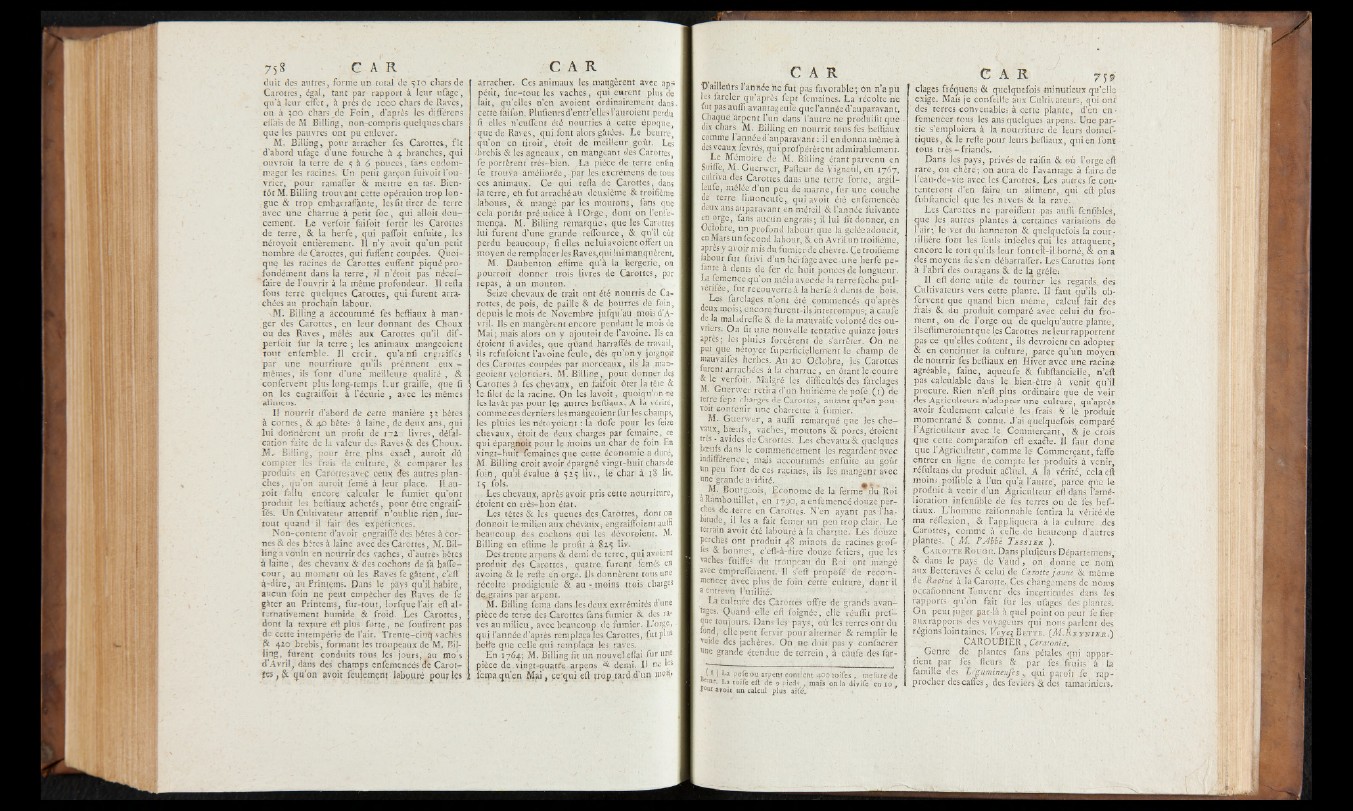 758 C A R
duit des autres, forme un total de 510 chars de
Carottes, égal, tant par rapport à leur usage,
qu'à leur effet, à près de 1000 chars de Raves,
ou à 300 chars de Foin, d'après les différens
essais de M Billing, non-compris quelques chars
que les pauvres ont pu enlever.
M. Billing, pour arracher ses Carottes, fit
d'abord usage d'une fouche à 4 branches, qui
ouvroit la terre de 4 à 6 pouces, sans endom-
mager les racines. Un petit garçon suivoit l'ou-
vrier, pour ramasser & mettre en tas. Bien-
tôt M. Billing trouvant cette opération trop lon-
gue & trop embarrassante, les fit tirer de terre
avec une charrue à petit soc, qui alloit dou-
cement. Le versoir faisoit sortir les Carottes
de terre, & la herse, qui passoit ensuite, les
nétoyoit entierement. Il n'y avoit qu'un petit
nombre de Carottes, qui fussent coupées. Quoi-
que les racines de Carottes eussent piqué pro-
fondément dans la terre, il n'étoit pas néces-
saire de l'ouvrir à la même profondeur. Il resta
sous terre quelques Carottes, qui furent arra-
chées au prochain labour.
M. Billing a accoutumé ses bestiaux à man-
ger des Carottes, en leur donnant des Choux
ou des Raves, mêlés aux Carottes qu'il dis-
persoit sur la terre; les animaux mangeoient
tout ensemble. Il croit, qu'ainsi engraissés
par une nourriture qu'ils prennent eux-
mêmes, ils sont d'une meilleure qualité, &
conservent plus long-temps leur graisse, que si
on les engraissoit à l'écurie, avec les mêmes
alimens.
Il nourrit d'abord de cette manière 33 bêtes
à cornes, & 40 bêtes à laine, de deux ans, qui
lui donnèrent un profit de livres, défal-
cation faite de la valeur des Raves & des Choux.
M. Billing, pour être plus exact, auroit dû
compter les frais de culture, & comparer les
produits en Carottes avec ceux des autres plan-
ches, qu'on auroit semé à leur place. Il au-
roit fallu encore calculer le fumier qu'ont
produit les bestiaux achetés, pour être engrais-
sés. Un Cultivateur attentif n'oublie rien, sur-
tout quand il fait des expériences.
Non-content d'avoir engraissé des bêtes à cor-
nes & des bêtes à laine avec des Carottes, M. Bil-
ling a voulu en nourrir des vaches, d'autres bêtes
à laine, des chevaux & des cochons de sa basse-
cour, au moment où les Raves se gâtent, c'est
à-dire, au Printems. Dans le pays qu'il habite,
aucun soin ne peut empêcher des Raves de se
gâter au Printems, sur-tout, lorsque l'air est al-
ternativement humide & froid. Les Carottes,
dont la texture est plus forte, ne souffrent pas
de cette intempérie de l'air. Trente-cinq vaches
& 420 brebis, formant les troupeaux de M. Bil-
ling, furent conduits tous les jours, au mois
d'Avril, dans des champs ensemencés de Carot-
tes, & qu'on avoit seulement labouré pour les
C A R
arracher. Ces animaux les mangèrent avec apé-
pétit, sur-tout les vaches, qui eurent plus de
lait, qu'elles n'en avoient ordinairement dans
cette saison. Plusieurs d'entr'elles l'auroient perdu
si elles n'eussent été nourries à cette époque,
que de Raves, qui sont alors gâtées. Le beurre,
qu'on en tiroit, étoit de meilleur goût. Les
brebis & les agneaux, en mangeant des Carottes,
se portèrent très-bien. La pièce de terre enfin
se trouva améliorée, par les excrémens de tous
ces animaux. Ce qui resta de Carottes, dans
la terre, en fut arraché au deuxième & troisième
labours, & mangé par les moutons, sans que
cela portât préjudice à l'Orge, dont on l'ense-
mença. M. Billing remarque, que les Carottes
lui furent d'une grande ressource, & qu'il eût
perdu beaucoup, si elles ne lui avoient offert un
moyen de remplacer les Raves, qui lui manquèrent.
M. Daubenton estime qu'à la bergerie, on
pourroit donner trois livres de Carottes, par
repas, à un mouton.
Seize chevaux de trait ont été nourris de Ca-
rottes, de pois, de paille & de bourres de foin,
depuis le mois de Novembre jusqu'au mois d'A-
vril. Ils en mangèrent encore pendant le mois de
Mai; mais alors on y ajoutoit de l'avoine. Ils en
étoient si avides, que quand harrassés de travail,
ils refusoient l'avoine seule, dès qu'on y joignoit
des Carottes coupées par morceaux, ils la man-
geoient volontiers. M. Billing, pour donner des
Carottes à ses chevaux, en faisoit ôter la tête &
le filet de la racine. On les lavoit, quoiqu'on ne
les lavât pas pour les autres bestiaux. A la vérité,
comme ces derniers les mangeoient sur les champs,
les pluies les nétoyoient: la dose pour les seize
chevaux, étoit de deux charges par semaine, ce
qui épargnoit pour le moins un char de foin En
vingt-huit semaines que cette économie a duré,
M Billing croit avoir épargné vingt-huit chars de
foin, qu'il évalue à 525 liv., le char à 18 liv.
15 sols.
Les chevaux, après avoir pris cette nourriture,
étoient en très-bon état.
Les têtes & les queues des Carottes, dont on
donnoit le milieu aux chevaux, engraissoient aussi
beaucoup des cochons qui les dévoroient. M.
Billing en estime le profit à 825 liv.
Des trente arpens & demi de terre, qui avoient
produit des Carottes, quatre furent semés en
avoine & le reste en orge. Ils donnèrent tous une
récolte prodigieuse & au-moins trois charges
de grains par arpent.
M. Billing sema dans les deux extrémités d'une
pièce de terre des Carottes sans fumier & des ra-
ves au milieu, avec beaucoup de fumier. L'orge,
qui l'année d'après remplaça les Carottes, fut plus
belle que celle qui remplaça les raves.
En 1764; M. Billing fit un nouvel essai sur une
pièce de vingt-quatre arpens & demi. Il ne les
sema qu'en Mai, ce qui est trop tard d'un mois.
C A R
D'ailleurs l'année ne fut pas favorable; on n'a pu
les sarcler qu'après sept semaines. La récolte ne
fut pas aussi avantageuse que l'année d'auparavant.
Chaque arpent l'un dans l'autre ne produisit que
dix chars M. Billing en nourrit tous ses bestiaux
comme l'année d'auparavant: il en donna même à
des veaux sevrés, qui prospérèrent admirablement.
Le Mémoire de M. Billing étant parvenu en
Suisse, M. Guerwer, Pasteur de Vigneul, en 1767,
cultiva des Carottes dans une terre forte, argil-
leuse, mêlée d'un peu de marne, sur une couche
de terre limoneuse, qui avoit été ensemencée
deux ans auparavant en méteil & l'année suivante
en orge, sans aucun engrais; il lui fit donner, en
Octobre, un profond labour que la gelée adoucit,
en Mars un second labour, & en Avril un troisième,
après y avoir mis du fumier de chèvre. Ce troisième
labour fut suivi d'un hersage avec une herse pe-
sante à dents de fer de huit pouces de longueur.
La semence qu'on mêla avec de la terre sèche pul-
vérisée, fut recouverte à la herse à dents de bois.
Les sarclages n'ont été commencés qu'après
deux mois; encore furent-ils interrompus, à cause
de la maladresse & de la mauvaise volonté des ou-
vriers. On fit une nouvelle tentative quinze jours
après; les pluies forcèrent de s'arrêter. On ne
put que nétoyer superficiellement le champ de
mauvaises herbes. Au 20 Octobre, les Carottes
furent arrachées à la charrue, en ôtant le coutre
& le versoir. Malgré les difficultés des sarclages
M. Guerwer retira d'un huitième de pose (1) de
terre sept charges de Carottes, autant qu'en pou-
voit contenir une charrette à fumier.
M. Guerwer, a aussi remarqué que les che-
vaux, bœufs, vaches, moutons & porcs, étoient
très-avides de Carottes. Les chevaux & quelques
bœufs dans le commencement les regardent avec
indifférence; mais accoutumés ensuite au goût
un peu fort de ces racines, ils les mangent avec
une grande avidité.
M. Bourgeois, Econome de la ferme du Roi
à Rambouillet, en 1790, a ensemencé douze per-
ches de terre en Carottes. N'en ayant pas l'ha-
bitude, il les a fait semer un peu trop clair. Le
terrain avoit été labouré à la charrue. Les douze
perches ont produit 48 minots de racines gros-
ses & bonnes, c'est-à-dire douze setiers, que les
vaches suisses du troupeau du Roi ont mangé
avec empressement. Il s'est proposé de recom-
mencer avec plus de soin cette culture, dont il
a entrevu l'utilité.
La culture des Carottes offre de grands avan-
tages. Quand elle est soignée, elle réussit pres-
que toujours. Dans les pays, où les terres ont du
fond, elle peut servir pour alterner & remplir le
vuide des jachères. On ne doit pas y consacrer
une grande étendue de terrein, à cause des sar-
(1) La pose ou arpent contient 400 toises, mesure de
Berne. La toise est de 9 pieds, mais on la divise en 10,
pour avoir un calcul plus aisé.
C A R 759
clages fréquens & quelquefois minutieux qu'elle
exige. Mais je conseille aux Cultivateurs, qui ont
des terres convenables à cette plante, d'en en-
semencer tous les ans quelques arpens. Une par-
tie s'emploiera à la nourriture de leurs domes-
tiques, & le reste pour leurs bestiaux, qui en sont
tous très-friands.
Dans les pays, privés de raisin & où l'orge est
rare, ou chère; on aura de l'avantage à faire de
l'eau-de-vie avec les Carottes. Les autres se con-
tenteront d'en faire un aliment, qui est plus
substanciel que les navets & la rave.
Les Carottes ne paroissent pas aussi sensibles,
que les autres plantes à certaines variations de
l'air; le ver du hanneton & quelquefois la cour-
tillière sont les seuls insectes qui les attaquent;
encore le tort qu'ils leur font est-il borné, & on a
des moyens de s'en débarrasser. Les Carottes sont
à l'abri des ouragans & de la grêle.
Il est donc utile de tourner les regards des
Cultivateurs vers cette plante. Il faut qu'ils ob-
servent que quand bien même, calcul fait des
frais & du produit comparé avec celui du fro-
ment, ou de l'orge ou de quelqu'autre plante,
ils estimeroient que les Carottes ne leur rapportent
pas ce qu'elles coûtent, ils devroient en adopter
& en continuer la culture, parce qu'un moyen
de nourrir ses bestiaux en Hiver avec une racine
agréable, saine, aqueuse & substancielle, n'est
pas calculable dans le bien-être à venir qu'il
procure. Rien n'est plus ordinaire que de voir
des Agriculteurs n'adopter une culture, qu'après
avoir seulement calculé les frais & le produit
momentané & connu. J'ai quelquefois comparé
l'Agriculteur avec le Commerçant, & je crois
que cette comparaison est exacte. Il faut donc
que l'Agriculteur, comme le Commerçant, fasse
entrer en ligne de compte les produits à venir,
résultans du produit actuel. A la vérité, cela est
moins possible à l'un qu'à l'autre, parce que le
produit à venir d'un Agriculteur est dans l'amé-
lioration insensible de ses terres ou de ses bes-
tiaux. L'homme raisonnable sentira la vérité de
ma réflexion, & l'appliquera à la culture des
Carottes, comme à celle de beaucoup d'autres
plantes. ( M. l'Abbé TESSIER ).
CAROTTE ROUGE. Dans plusieurs Départemens,
& dans le pays de Vaud, on donne ce nom
aux Betteraves & celui de Carotte jaune & même
de Racine à la Carotte. Ces changemens de noms
occasionnent souvent des incertitudes dans les
rapports qu'on fait sur les usages des plantes.
On peut juger par-là à quel point on peut se fier
aux rapports des voyageurs qui nous parlent des
régions lointaines. Voyez BETTE. (M. REYNIER.)
CAROUBIER, Ceratonia.
Genre de plantes sans pétales qui appar-
tient par ses fleurs & par ses fruits à la
famille des Légumineuses, qui paroît se rap-
procher des casses, des féviers & des tamariniers.